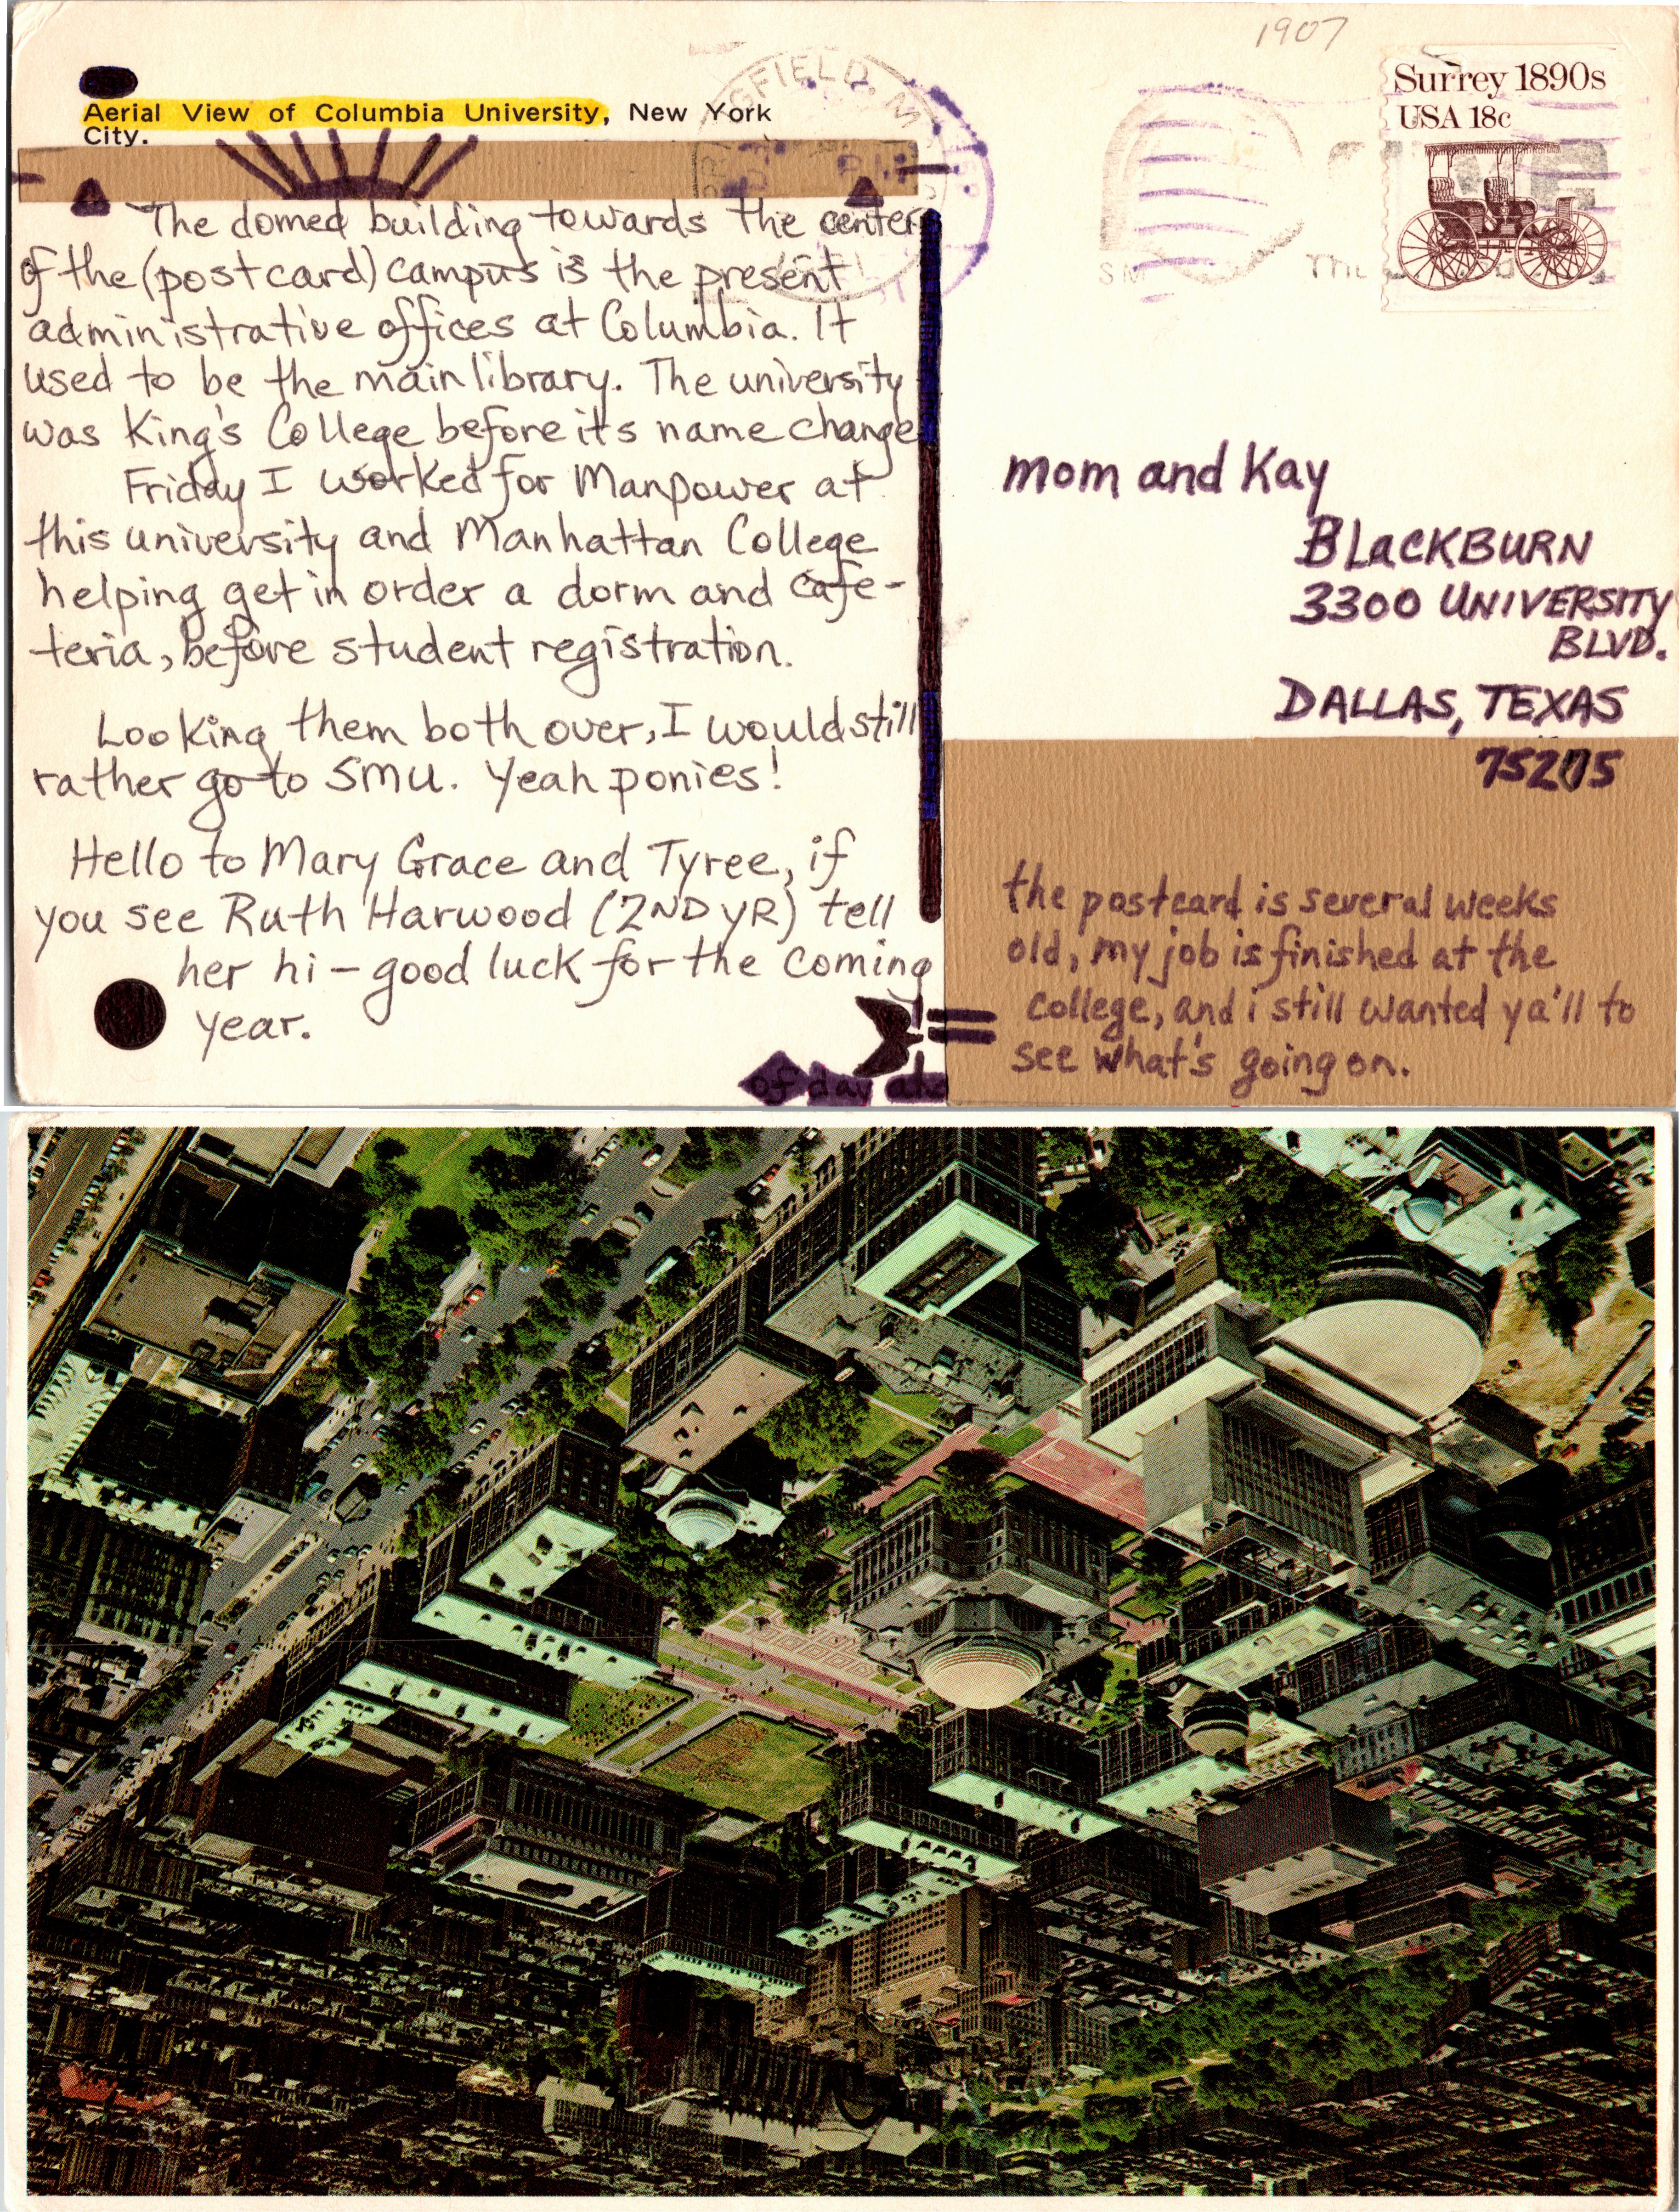 1907
Aerial View of Columbia University, New York
City.
Surrey 1890s
USA 18c
The domed building towards the center
of the (postcard) campus is the present
administrative offices at Columbia. It
used to be the main library. The university
was King's College before its name change
Friday I worked for Manpower at
this university and Manhattan College
helping get in order a dorm and cafe-
teria, before student registration.
Looking them both over, I would still
rather go to SMU. Yeah ponies!
Hello to Mary Grace and Tyree, if
you see Ruth Harwood (2ND YR) tell
her hi - good luck for the coming
year.
of day
mom and Kay
BLACKBURN
3300 UNIVERSITY
BLVD.
DALLAS, TEXAS
75275
the postcard is several weeks
old, my job is finished at the
college, and i still wanted ya'll to
see what's going on.